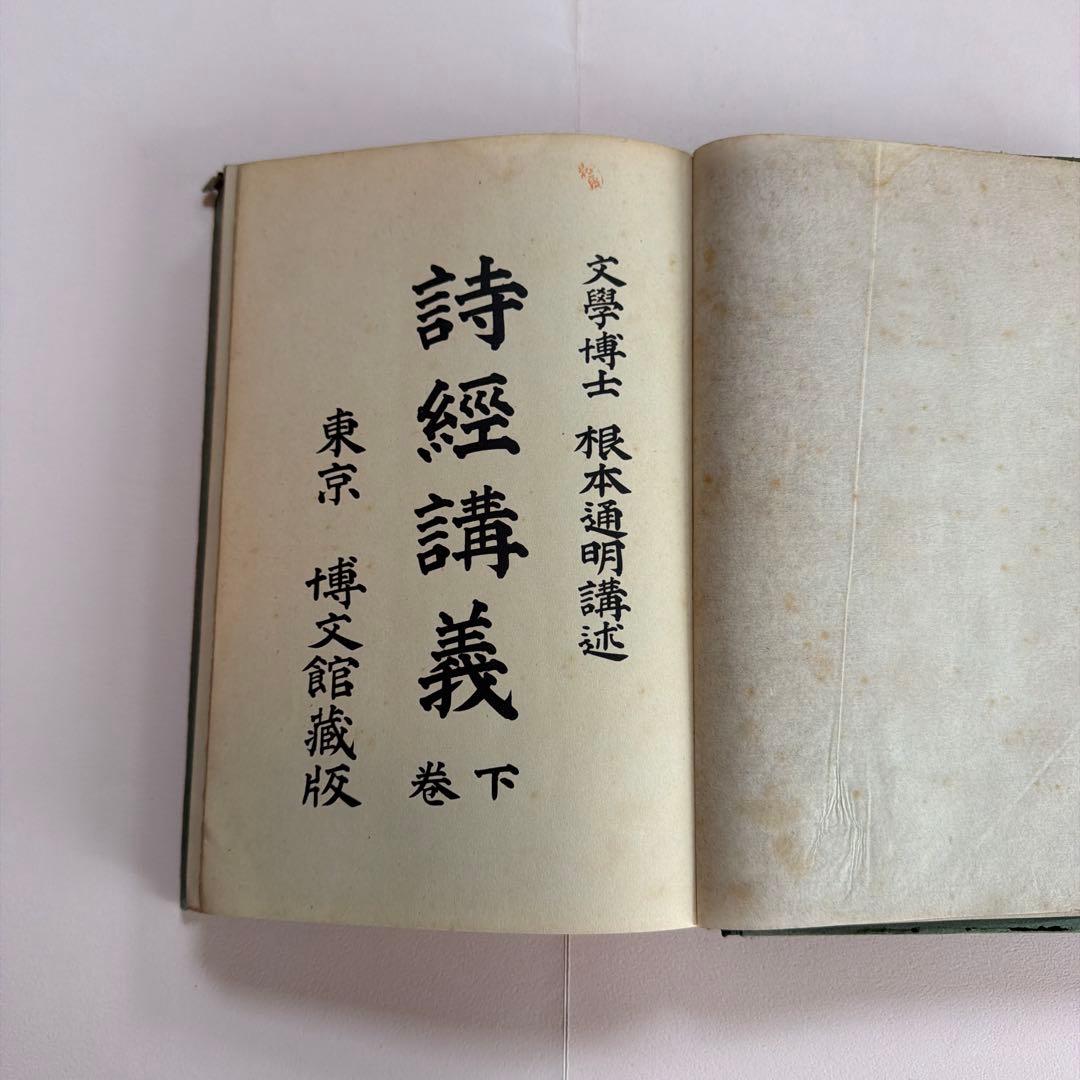 文學博士 根本通明講述
詩經講義
下卷
東京 博文館藏版